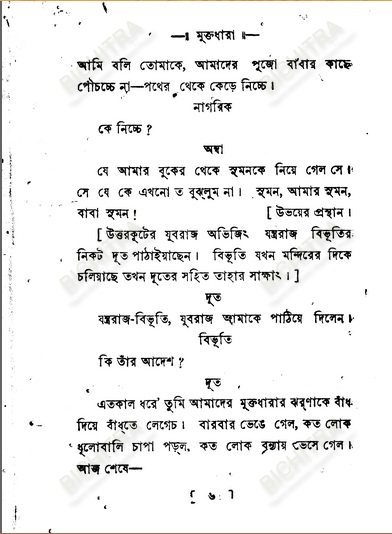 —॥ মুক্তধারা ॥—
আমি বলি তোমাকে, আমাদের পূজো বাবার কাছে
পৌচচ্চে না—পথের থেকে কেড়ে নিচ্চে।
নাগরিক
কে নিচ্চে ?
অম্বা
যে আমার বুকের থেকে সুমনকে নিয়ে গেল সে।
সে যে কে এখনো ত বুঝলুম না। সুমন, আমার সুমন,
বাবা সুমন ! [ উভয়ের প্রস্থান।
[ উত্তরকূটের যুবরাজ অভিজিৎ যন্ত্ররাজ বিভূতির
নিকট দূত পাঠাইয়াছেন। বিভূতি যখন মন্দিরের দিকে
চলিয়াছে তখন দূতের সহিত তাহার সাক্ষাৎ। ]
দূত
যন্ত্ররাজ-বিভূতি, যুবরাজ আমাকে পাঠিয়ে দিলেন।
বিভূতি
কি তাঁর আদেশ ?
দূত
এতকাল ধরে' তুমি আমাদের মুক্তধারার ঝরণাকে বাঁধ
দিয়ে বাঁধতে লেগেচ। বারবার ভেঙে গেল, কত লোক
ধূলোবালি চাপা পড়ল, কত লোক বন্যায় ভেসে গেল।
আজ শেষে—
[ ৬ ]
BICHITRA